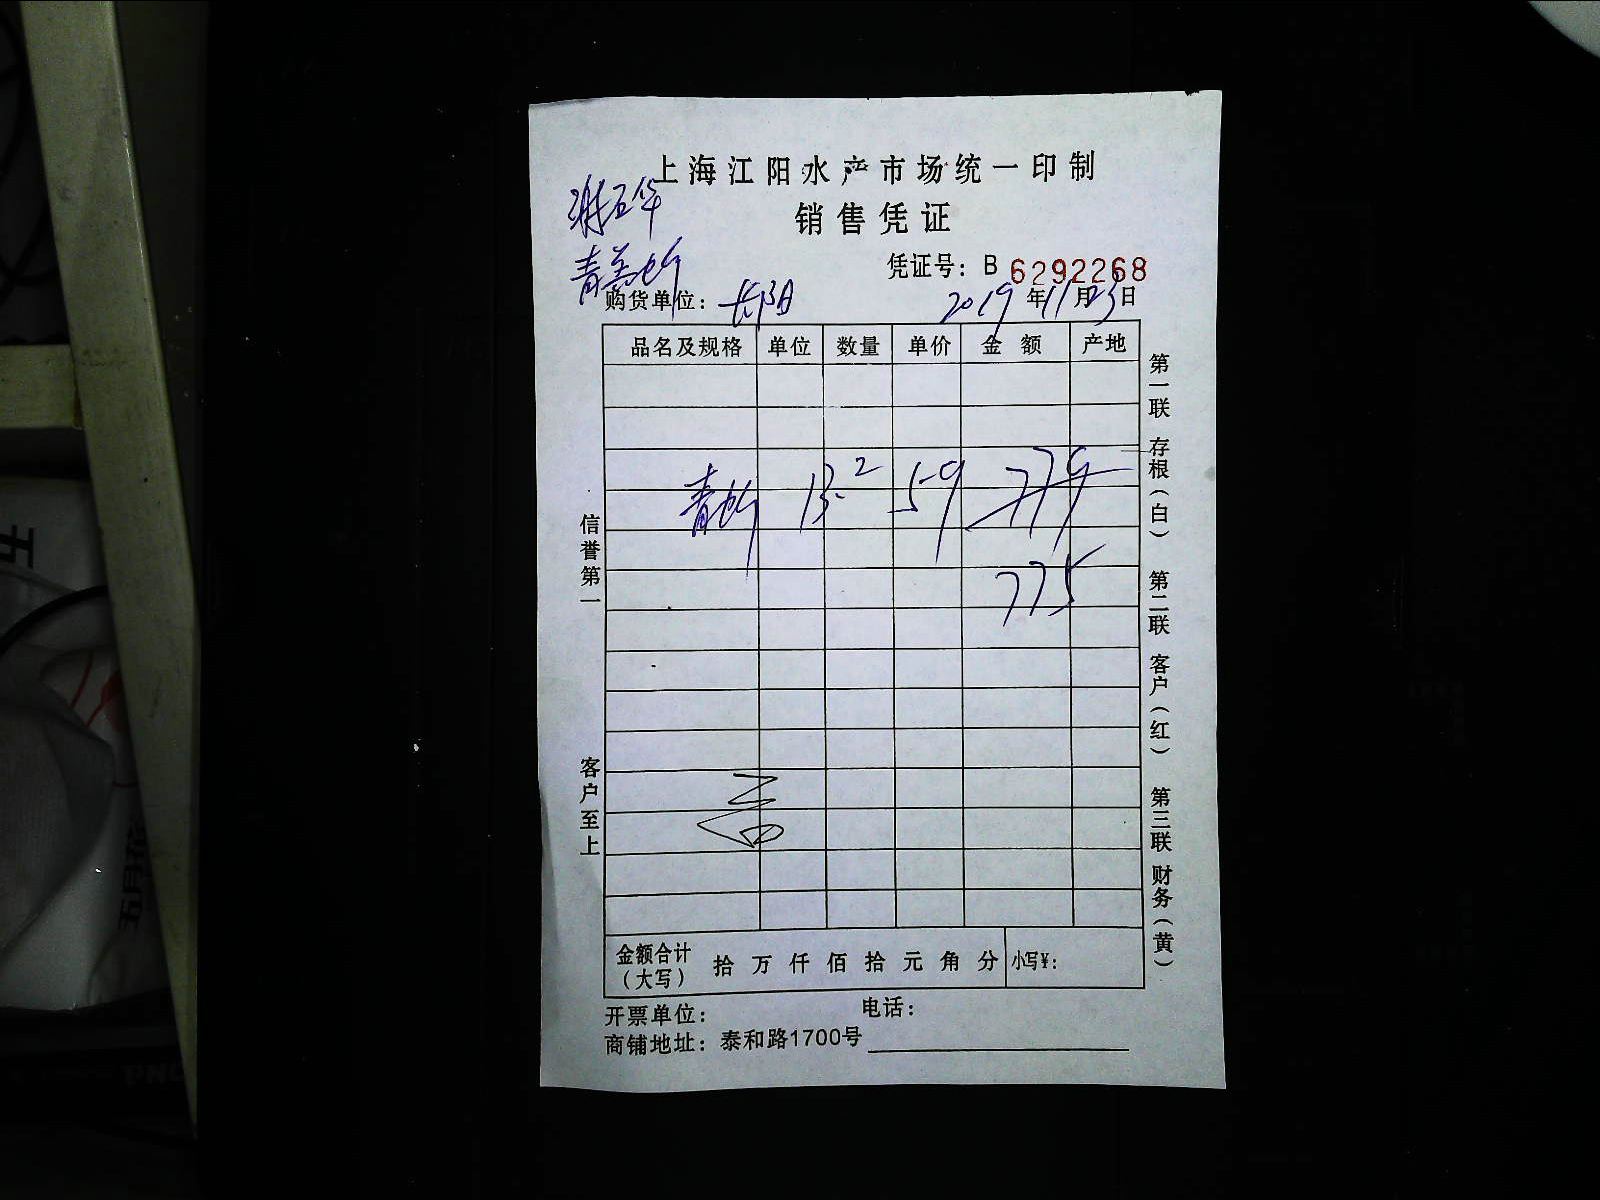 上海江阳水产市场统一印制
销售凭证
凭证号：B 6292268
购货单位：长阳
2019年11月23日
品名及规格 单位 数量 单价 金额 产地
青 13.2 59 779
775
信誉第一
客户至上
第一联 存根（白） 第二联 客户（红） 第三联 财务（黄）
金额合计（大写） 拾 万 仟 佰 拾 元 角 分 小写¥：
开票单位： 电话：
商铺地址：泰和路1700号